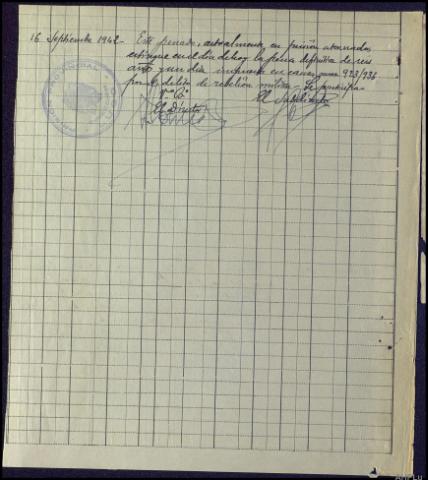 16 Septiembre 1942 - Este penado, actualmente en prisión atenuada,
extingue en el día de hoy la pena definitiva de seis
años y un día impuesta en causa 923/936
por el delito de rebelión militar.
Vº Bº
El Director
El Subdirector